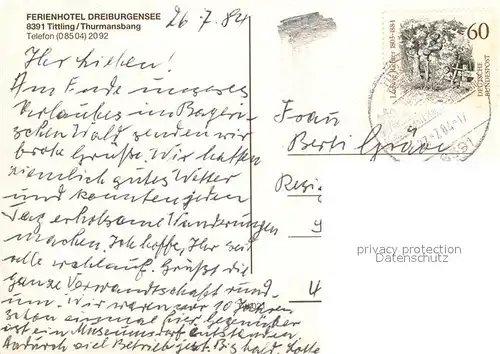 FERIENHOTEL DREIBURGENSEE
8391 Tittling / Thurmansbang
Telefon (0 85 04) 20 92
26.7.84
Ihr Lieben!
Am Ende unseres
Urlaubes im Bayeri-
schen Wald senden wir
Grüße. Wir hatten
ziemlich gutes Wetter
und konnten jeden
Tag erholsame Wanderungen
machen. Ich hoffe, Ihr seid
alle wohlauf. Grüßt die
ganze Verwandtschaft rund-
um. Wir waren vor 10 Jahren
schon einmal hier. Gegenüber
ist ein Museumsdorf entstanden
dadurch viel Betrieb jetzt. Bis bald.
60
DEUTSCHE
BUNDESPOST
Frau
Berti
privacy protection
Datenschutz